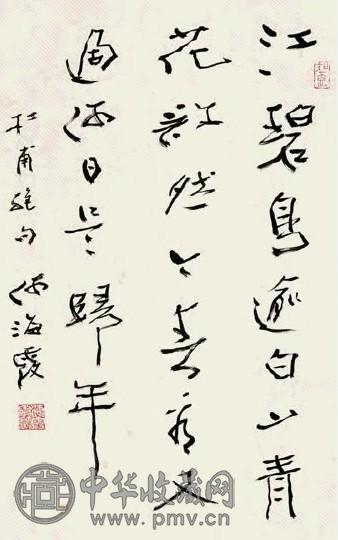 江碧鳥逾白山青
花欲然今春看又
過何日是歸年
杜甫絶句 何海霞
中华收藏网
www.pmv.cn